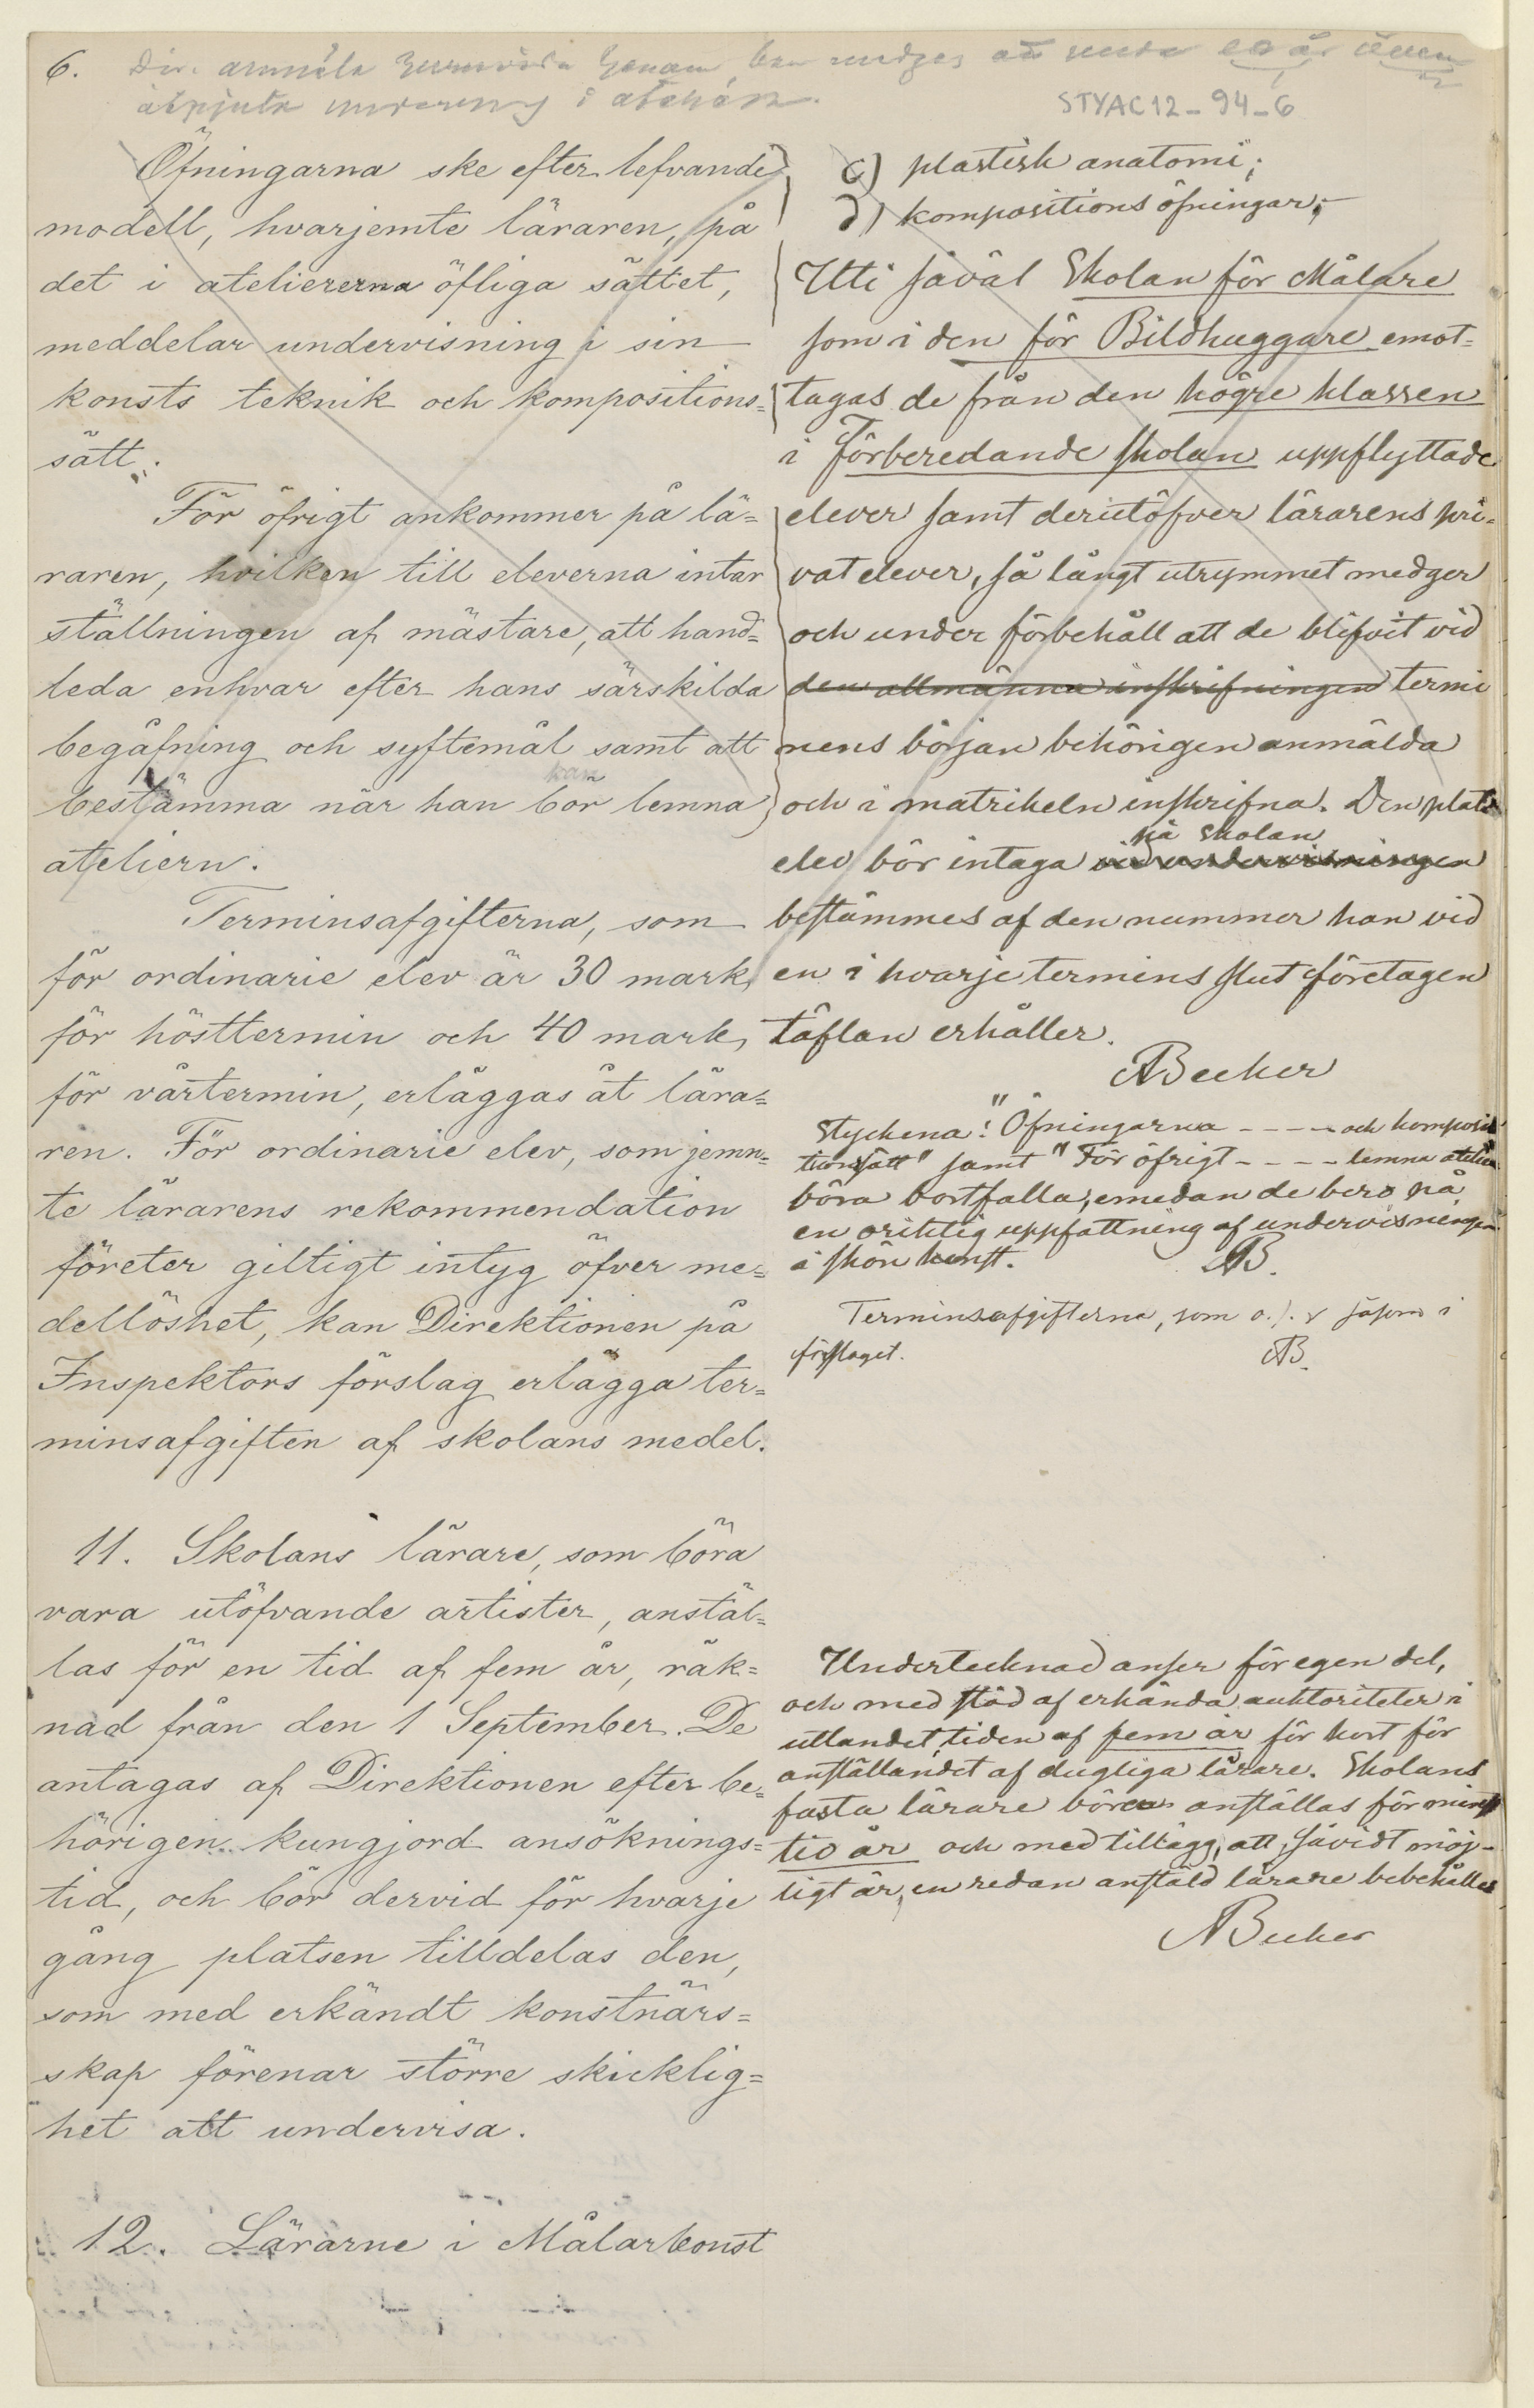 6.
STYAC12-94-6
Öfningarna ske efter lefvande
modell, hvarjemte läraren, på
det i ateliererna öfliga sättet,
meddelar undervisning i sin
konsts teknik och kompositions=
sätt.
För öfrigt ankommer på lä=
raren, hvilken till eleverna intar
ställningen af mästare, att hand=
leda enhvar efter hans särskilda
begåfning och syftemål samt att
kan
bestämma när han bör lemna
ateliern.
Terminsafgifterna, som
för ordinarie elev är 30 mark,
för hösttermin och 40 mark,
för vårtermin, erläggas åt lära=
ren. För ordinarie elev, som jemn=
te lärarens rekommendation
företer giltigt intyg öfver me=
dellöshet, kan Direktionen på
Inspektors förslag erlägga ter=
minsafgiften af skolans medel.
11. Skolans lärare, som böra
vara utöfvande artister, anstäl=
las för en tid af fem år, räk=
nad från den 1 September. De
antagas af Direktionen efter be=
hörigen kungjord ansöknings=
tid, och bör dervid för hvarje
gång platsen tilldelas den,
som med erkändt konstnärs=
skap förenar större skicklig=
het att undervisa.
12. Lärarne i Målarkonst
c) plastisk anatomi;
d) kompositionsöfningar;
Uti såväl Skolan för Målare
som i den för Bildhuggare emot=
tagas de från den högre klassen
i Förberedande skolan uppflyttade
elever samt derutöfver lärarens pri=
vat elever, så långt utrymmet medger
och under förbehåll att de blifvit vid
den allmänna inskrifningen termi
nens början behörigen anmälda
och i matrikeln inskrifna. Den plats
på Skolan
elev bör intaga vid undervisningen
bestämmes af den nummer han vid
en i hvarje termins slut företagen
täflan erhåller.
ABecker
Styckena: "Öfningarna - - - - och komposi
tionssätt" samt "För öfrigt - - - - lemna atelien
böra bortfalla, emedan de bero på
en oriktig uppfattning af undervisningen
i skön konst. AB.
Terminsafgifterna, som o.s.v såsom i
förslaget. AB.
Undertecknad anser för egen del,
och med stöd af erkända auktoriteter i
utlandet, tiden af fem år för kort för
anställandet af dugliga lärare. Skolans
fasta lärare böra anställas för minst
tio år och med tillägg, att, såvidt möj-
ligt är, en redan anstäld lärare bebehålles
ABecker